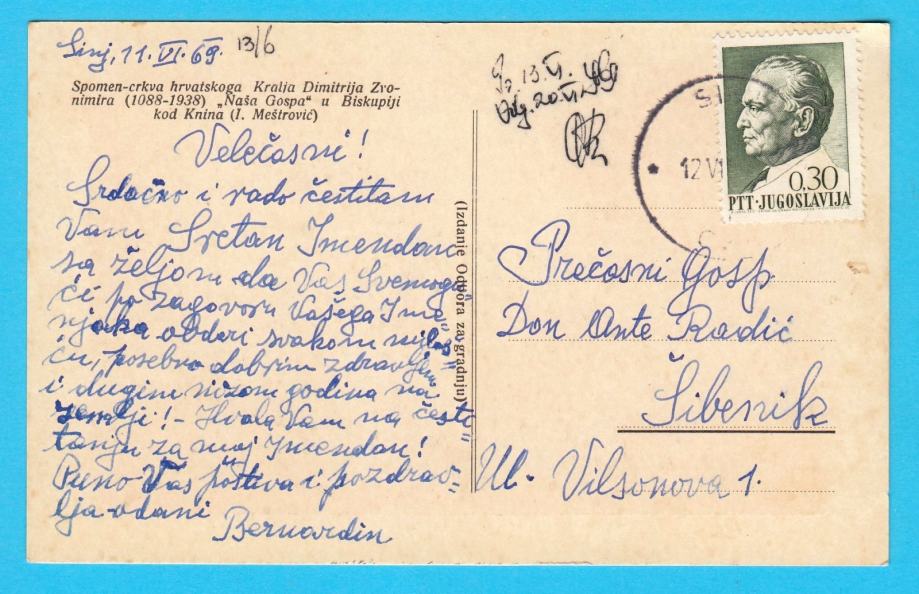 Sinj, 11. VI. 69. 13/6
Spomen-crkva hrvatskoga Kralja Dimitrija Zvo-
nimira (1088-1938) „Naša Gospa" u Biskupiji
kod Knina (I. Meštrović)
Velečasni!
Srdačno i rado čestitam
Vam Sretan Imendan
sa željom da Vas Svemogu=
ći po zagovoru Vašega Ime=
njaka obdari svakom milos=
ću, posebno dobrim zdravljem
i dugim nizom godina na
zemlji! - Hvala Vam na česti=
tanju za moj Imendan!
Puno Vas poštiva i pozdrav=
lja odani
Bernardin
(Izdanje Odbora za gradnju)
13. VI.
Odg. 20. VI. 69
SI
12 VI
0,30
PTT·JUGOSLAVIJA
Prečasni Gosp
Don Ante Radić
Šibenik
Ul. Vilsonova 1.